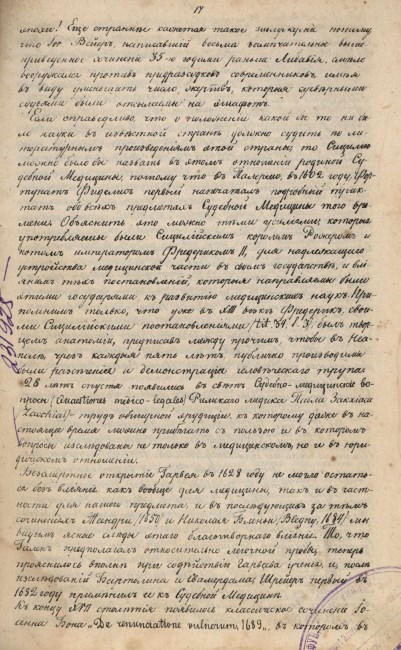 17
эпохи! Еще страннее кажется такое заблужденіе потому
что Іог. Вейеръ, написавшій весьма замѣчательное выше
приведенное сочиненіе 35-ю годами ранѣе Либавія, смѣло
вооружался противъ предразсудковъ современниковъ имѣя
въ виду уменьшить число жертвъ, которыя суевѣрными
судьями были отсылаемы на эшафотъ.
Если справедливо, что о положеніи какой бы то ни бы
ло науки въ извѣстной странѣ должно судить по ли-
тературнымъ произведеніямъ этой страны, то Сицилію
можно было бы назвать въ этомъ отношеніи родиной Су-
дебной Медицины, потому что въ Палермо, въ 1602 году, Фор-
тунатъ Фиделисъ первый напечаталъ подробный трак-
татъ обо всѣхъ предметахъ Судебной Медицины того вре-
мени. Объяснить это можно тѣми усиліями, которыя
употребляемы были Сицилійскимъ королемъ Рожеромъ и
потомъ императоромъ Фридерикомъ II, для надлежащаго
устройства медицинской части въ своемъ государствѣ, и влі-
яніемъ тѣхъ постановленій, которыя направляемы были
этими государями къ развитію медицинскихъ наукъ. При-
помнимъ только, что уже въ XIII вѣкѣ Фридерикъ, свои-
ми Сицилійскими постановленіями, tit. 34. l. 3. былъ твор-
цомъ анатоміи, предписавъ между прочимъ, чтобы въ Неа-
полѣ, чрезъ каждыя пять лѣтъ, публично производимы
были разсѣченія и демонстраціи человѣческаго трупа.
28 лѣтъ спустя появились въ свѣтъ Судебно-медицинскіе во-
просы (Quaestiones medico-legales) Римскаго медика Павла Заккіаса
Zacchia) - трудъ обширной эрудиціи, къ которому даже въ на-
стоящее время можно прибѣгать съ пользою и въ которомъ
вопросы изслѣдованы не только въ медицинскомъ, но и въ юри-
дическомъ отношеніи.
Безсмертное открытіе Гарвея въ 1628 году не могло остать-
ся безъ вліянія какъ вообще для медицины, такъ и въ част-
ности для нашего предмета, и въ послѣдующихъ за тѣмъ
сочиненіяхъ 1650 и Николая Блѣньи, 1684) мы
видимъ ясные слѣды этого благотворнаго вліянія. То, что
Галенъ предполагалъ относительно легочной пробы, теперь
прояснилось вполнѣ при содѣйствіи Гарвеева ученія, и послѣ
изслѣдованій Бартолина и Сваммердама, Шрейеръ первый въ
1682 году примѣнилъ ее къ Судебной Медицинѣ.
Къ концу XVII столѣтія появилось классическое сочиненіе Го-
анна Бона "De renunciatione vulnerum, 1689", въ которомъ въ